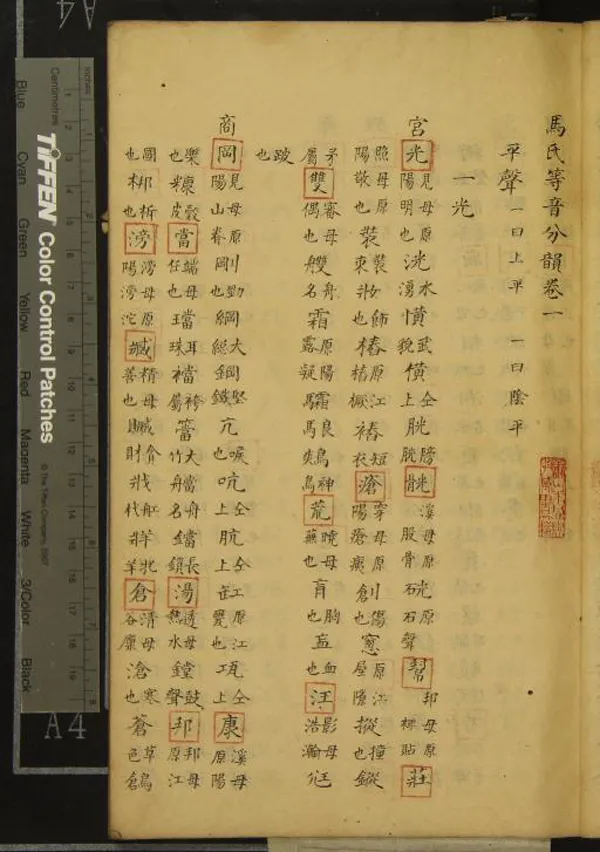 馬氏等音分韻卷一
平聲 一曰上平 一曰陰平
一光
宮 光 見母原陽明也 洸 水湧 慌 武貌 僙 仝上 胱 膀胱 骯 溪母原 股骨 硄 原石聲 幫 邦母原 裨貼 莊
照母原陽敬也 裝 裝束 妝 飾也 樁 原江樁橛 䄝 短衣 滄 穿母原陽 創 傷也 窻 原江屋牖 摐 撞也 鏦
矛屬 雙 審母偶也 艭 舟名 霜 原陽露凝 驦 良馬 鷞 神鳥 荒 曉母蕪也 肓 胸也 衁 血也 汪 影母浩瀚 尪
跛也
商 岡 見母原陽山脊 剛 勁也 綱 大絲 鋼 堅鐵 亢 喉也 吭 仝上 肮 仝上 缸 原江甖也 瓨 仝上 康 溪母原陽
樂也 糠 穀皮 當 端母任也 璫 耳珠 襠 袴屬 簹 大竹 艡 舟名 鐺 長鎖 湯 透母熱水 鏜 鼓聲 邦 邦母原江
國也 梆 柝也 滂 滂母原陽滂沱 臧 精母善也 贓 貪財 牂 羊牝 倉 清母穀廩 滄 寒也 蒼 草色 鶬 鳥
TIFFEN Color Control Patches
© The Tiffen Company, 2007
Centimetres
Inches
Blue Cyan Green Yellow Red Magenta White 3/Color Black
A4
A4